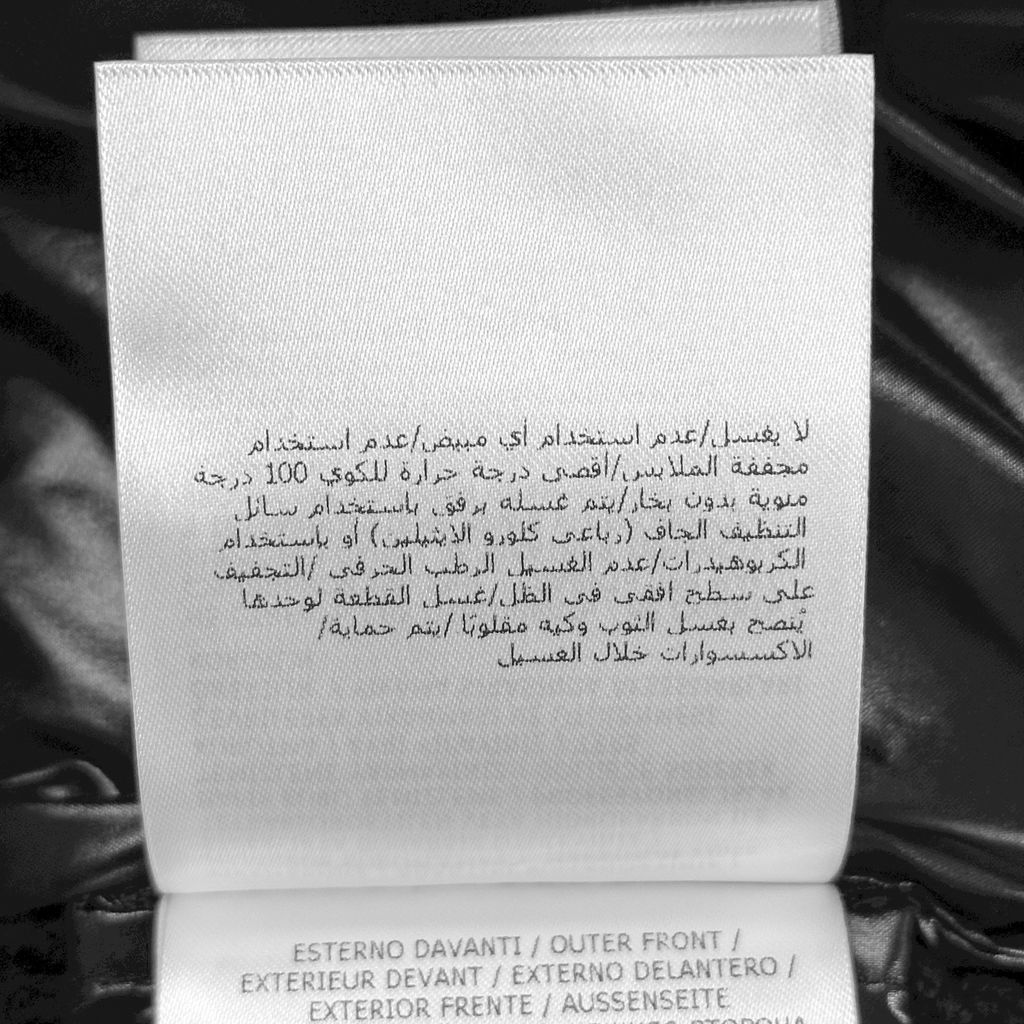 لا يغسل/عدم استخدام أي مبيض/عدم استخدام
مجففة الملابس/أقصى درجة حرارة للكوي 100 درجة
مئوية بدون بخار/يتم غسله برفق باستخدام سائل
التنظيف الجاف (رباعي كلورو الايثيلين) أو باستخدام
الكربوهيدرات/عدم الغسيل الرطب الحرفي /التجفيف
على سطح افقي في الظل/غسل القطعة لوحدها
يُنصح بغسل الثوب وكيه مقلوبًا /يتم حماية/
الاكسسوارات خلال الغسيل
ESTERNO DAVANTI / OUTER FRONT /
EXTERIEUR DEVANT / EXTERNO DELANTERO /
EXTERIOR FRENTE / AUSSENSEITE